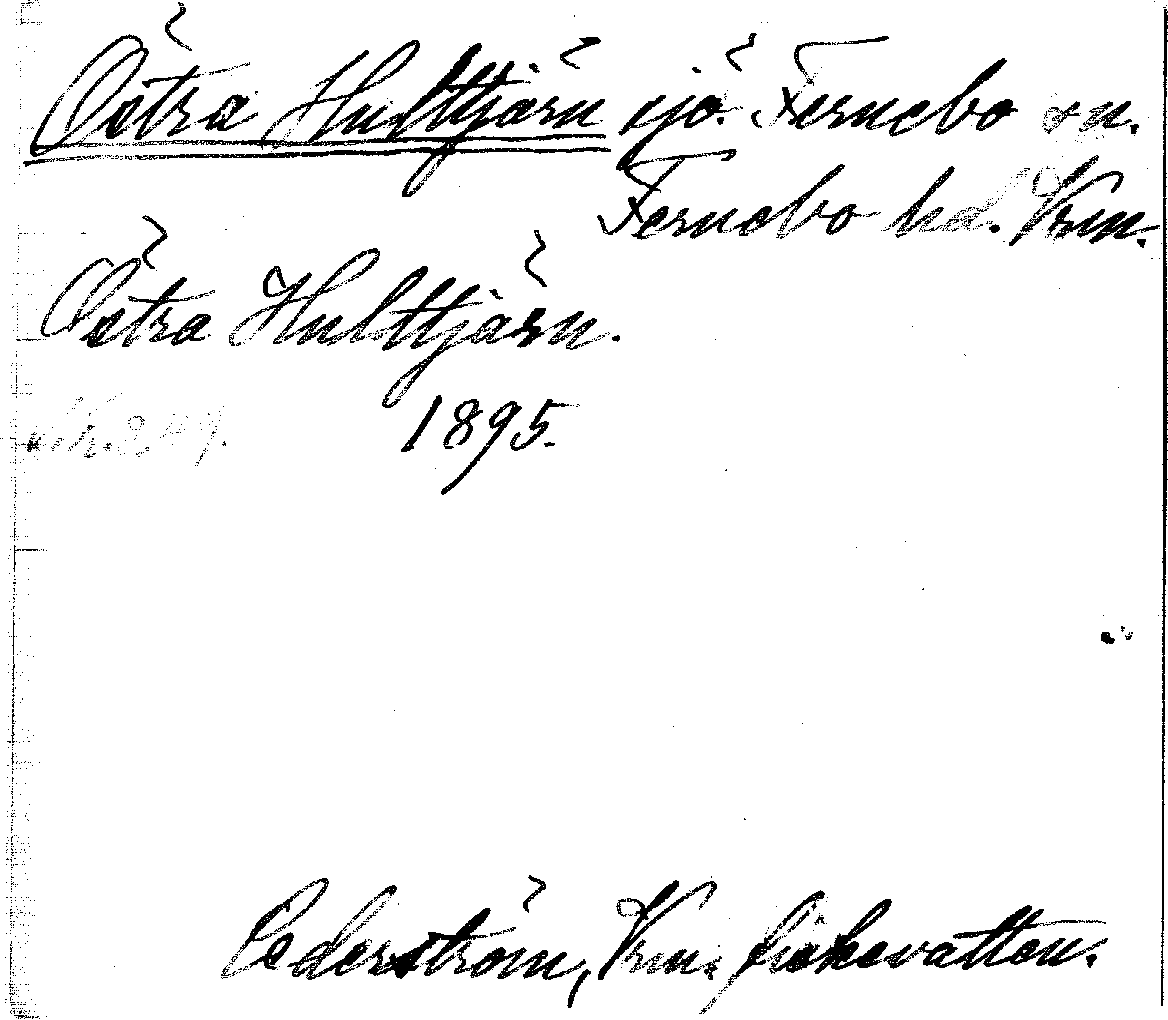 Östra Hulttjärn sjö. Fernebo sn.
Fernebo hd. Vrm.
Östra Hulttjärn.
1895.
Cederström, Vrm. fiskevatten.